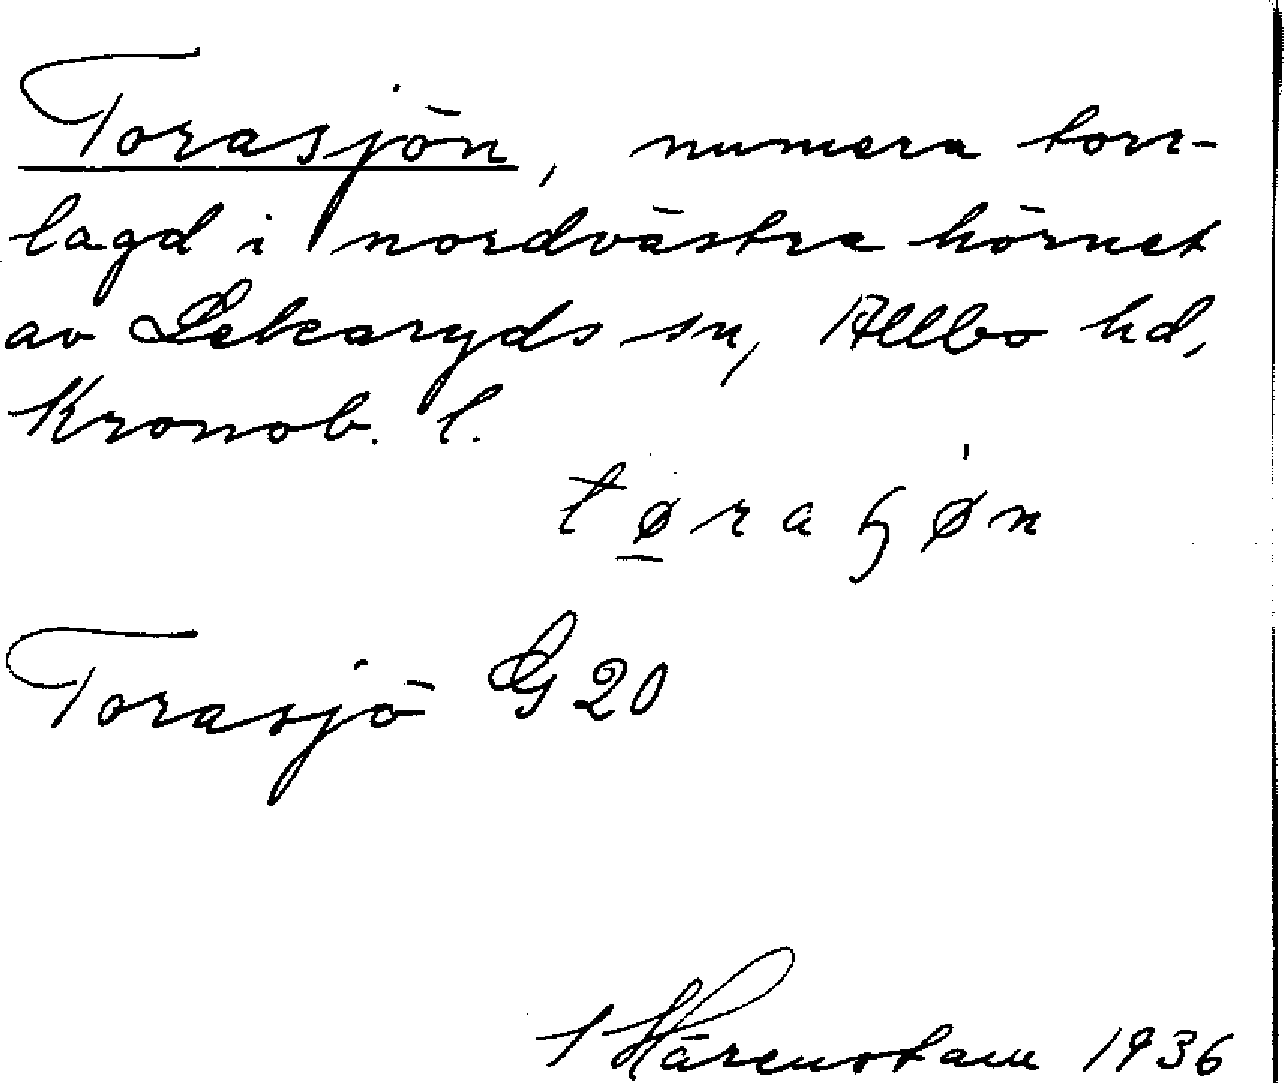 Torasjön, numera torr-
lagd i nordvästra hörnet
av Lekaryds sn, Allbo hd,
Kronob. l.
tøraɧøn
Torasjö G 20
Härenstam 1936